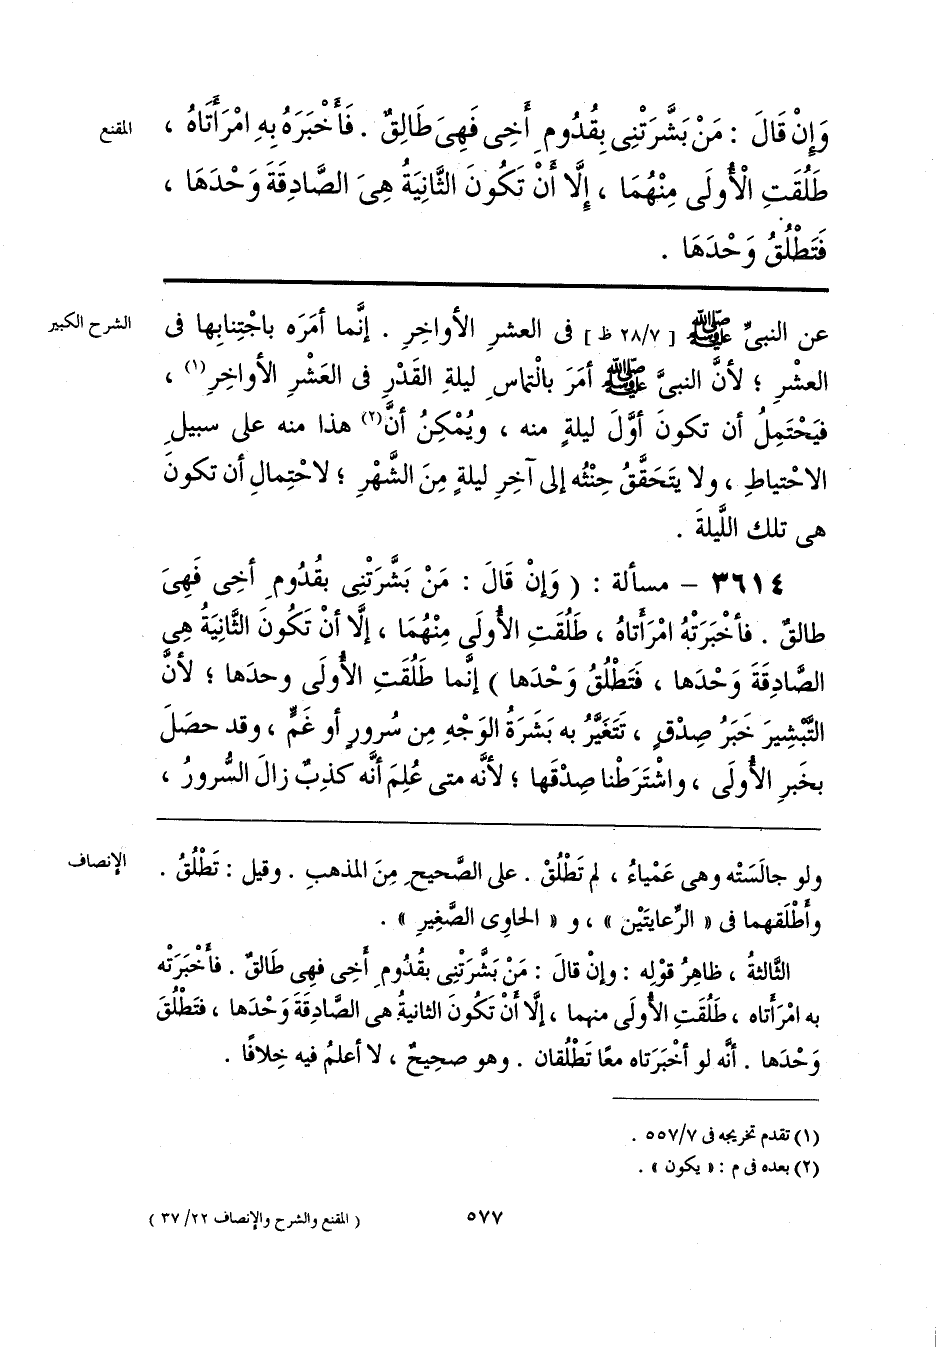 المقنع
وَإِنْ قَالَ : مَنْ بَشَّرَتْنِى بِقُدُومِ أَخِى فَهِىَ طَالِقٌ . فَأَخْبَرَهُ بِهِ امْرَأَتَاهُ ،
طَلُقَتِ الْأُولَى مِنْهُمَا ، إِلَّا أَنْ تَكُونَ الثَّانِيَةُ هِىَ الصَّادِقَةَ وَحْدَهَا ،
فَتَطْلُقُ وَحْدَهَا .
الشرح الكبير
عن النبىِّ ﷺ [ ٢٨/٧ ظ ] فى العشرِ الأواخِرِ . إنَّما أمَرَه باجْتِنابِها فى
العشْرِ ؛ لأنَّ النبىَّ ﷺ أمَرَ بالْتماسِ ليلةِ القَدْرِ فى العَشْرِ الأواخِرِ(١) ،
فيَحْتَمِلُ أن تكونَ أوَّلَ ليلةٍ منه ، ويُمْكِنُ أنَّ(٢) هذا منه على سبيلِ
الاحْتياطِ ، ولا يتَحَقَّقُ حِنْثُه إلى آخِرِ ليلةٍ مِنَ الشَّهْرِ ؛ لاحْتِمالِ أن تكونَ
هى تلك اللَّيلةَ .
٣٦١٤ – مسألة : ( وَإنْ قَالَ : مَنْ بَشَّرَتْنِى بقُدُومِ أخِى فَهِىَ
طالقٌ . فأخْبَرَتْهُ امْرَأتاهُ ، طَلُقَتِ الأُولَى مِنْهُمَا ، إلَّا أنْ تَكُونَ الثَّانِيَةُ هِى
الصَّادِقَةَ وَحْدَها ، فَتَطْلُقُ وَحْدَها ) إنَّما طَلُقَتِ الأُولَى وحدَها ؛ لأنَّ
التَّبْشِيرَ خَبَرُ صِدْقٍ ، تَتَغَيَّرُ به بَشَرَةُ الوَجْهِ مِن سُرورٍ أو غَمٍّ ، وقد حصَلَ
بخَبرِ الأُولَى ، واشْتَرَطْنا صِدْقَها ؛ لأنَّه متى عُلِمَ أنَّه كذِبٌ زالَ السُّرورُ ،
الإنصاف
ولو جالَسَتْه وهى عَمْياءُ ، لم تَطْلُقْ . على الصَّحيحِ مِنَ المذهبِ . وقيل : تَطْلُقُ .
وأَطْلَقهما فى « الرِّعايتَيْن » ، و « الحاوِى الصَّغِيرِ » .
الثَّالثةُ ، ظاهِرُ قوْلِه : وإنْ قالَ : مَنْ بَشَّرَتْنِى بقُدُومِ أَخِى فهِى طَالقٌ . فأَخْبَرَتْه
به امْرأتاه ، طَلُقَتِ الأُولَى منهما ، إلَّا أَنْ تَكُونَ الثانيةُ هى الصَّادِقَةَ وَحْدَها ، فتَطْلُقَ
وَحْدَها . أنَّه لو أخْبَرَتاه معًا تَطْلُقان . وهو صحيحٌ ، لا أعلمُ فيه خِلافًا .
(١) تقدم تخريجه فى ٥٥٧/٧ .
(٢) بعده فى م : « يكون » .
٥٧٧
( المقنع والشرح والإنصاف ٢٢/ ٣٧ )